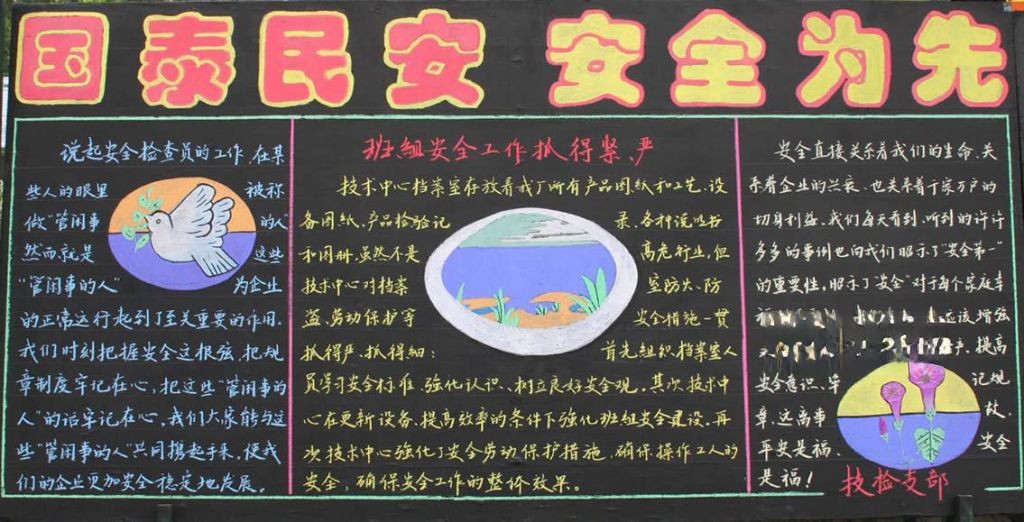 国泰民安 安全为先
说起安全检查员的工作，在某
些人的眼里 被称
做"管闲事 的人"
然而就是 这些
"管闲事的人" 为企业
的正常运行起到了至关重要的作用。
我们时刻把握安全这根弦，把规
章制度牢记在心，把这些"管闲事的
人"的话牢记在心，我们大家能与这
些"管闲事的人"共同携起手来，使我
们的企业更加安全稳定地发展。
班组安全工作抓得紧、严
技术中心档案室存放着我厂所有产品图纸和工艺、设
备图纸、产品检验记 录、各种说明书
和图册。虽然不是 高危行业，但
技术中心对档案 室防火、防
盗、劳动保护等 安全措施一贯
抓得严、抓得细： 首先组织档案室人
员学习安全标准、强化认识、树立良好安全观。其次技术中
心在更新设备、提高效率的条件下强化班组安全建设。再
次技术中心强化了安全劳动保护措施，确保操作工人的
安全，确保安全工作的整体效果。
安全直接关系着我们的生命、关
系着企业的兴衰、也关系着千家万户的
切身利益。我们每天看到、听到的许许
多多的事例也向我们昭示了"安全第一"
的重要性，昭示了"安全"对于每个家庭幸
应该增强
提高
安全意识、牢 记规
章、远离事 故，
平安是福、 安全
是福！
技检支部